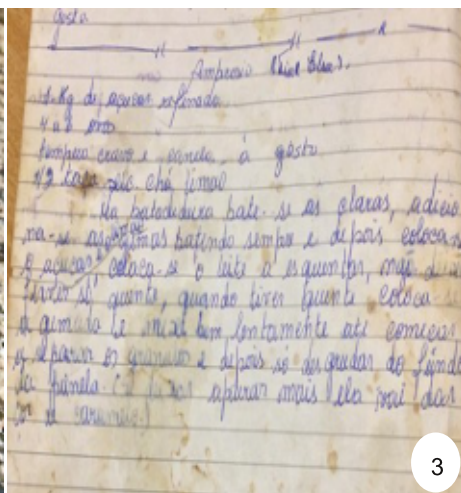 gosto
Ambrosia
1 Kg de açucar refinado
4 a 6 ovos
tempero cravo e canela, a gosto
1/2 taça chá limão
Na batedidura bate-se as claras, adicio
na-se as gemas batendo sempre e depois colocar
o açucar, coloca-se o leite a esquentar, não deixa
ferver só quente, quando tiver quente coloca-se
a gemada e mexe bem lentamente até começar
a separar os granulos e depois só desgrudar do fundo
da panela. (se deixar apurar mais ela vai dar
cor de caramelo.)
3